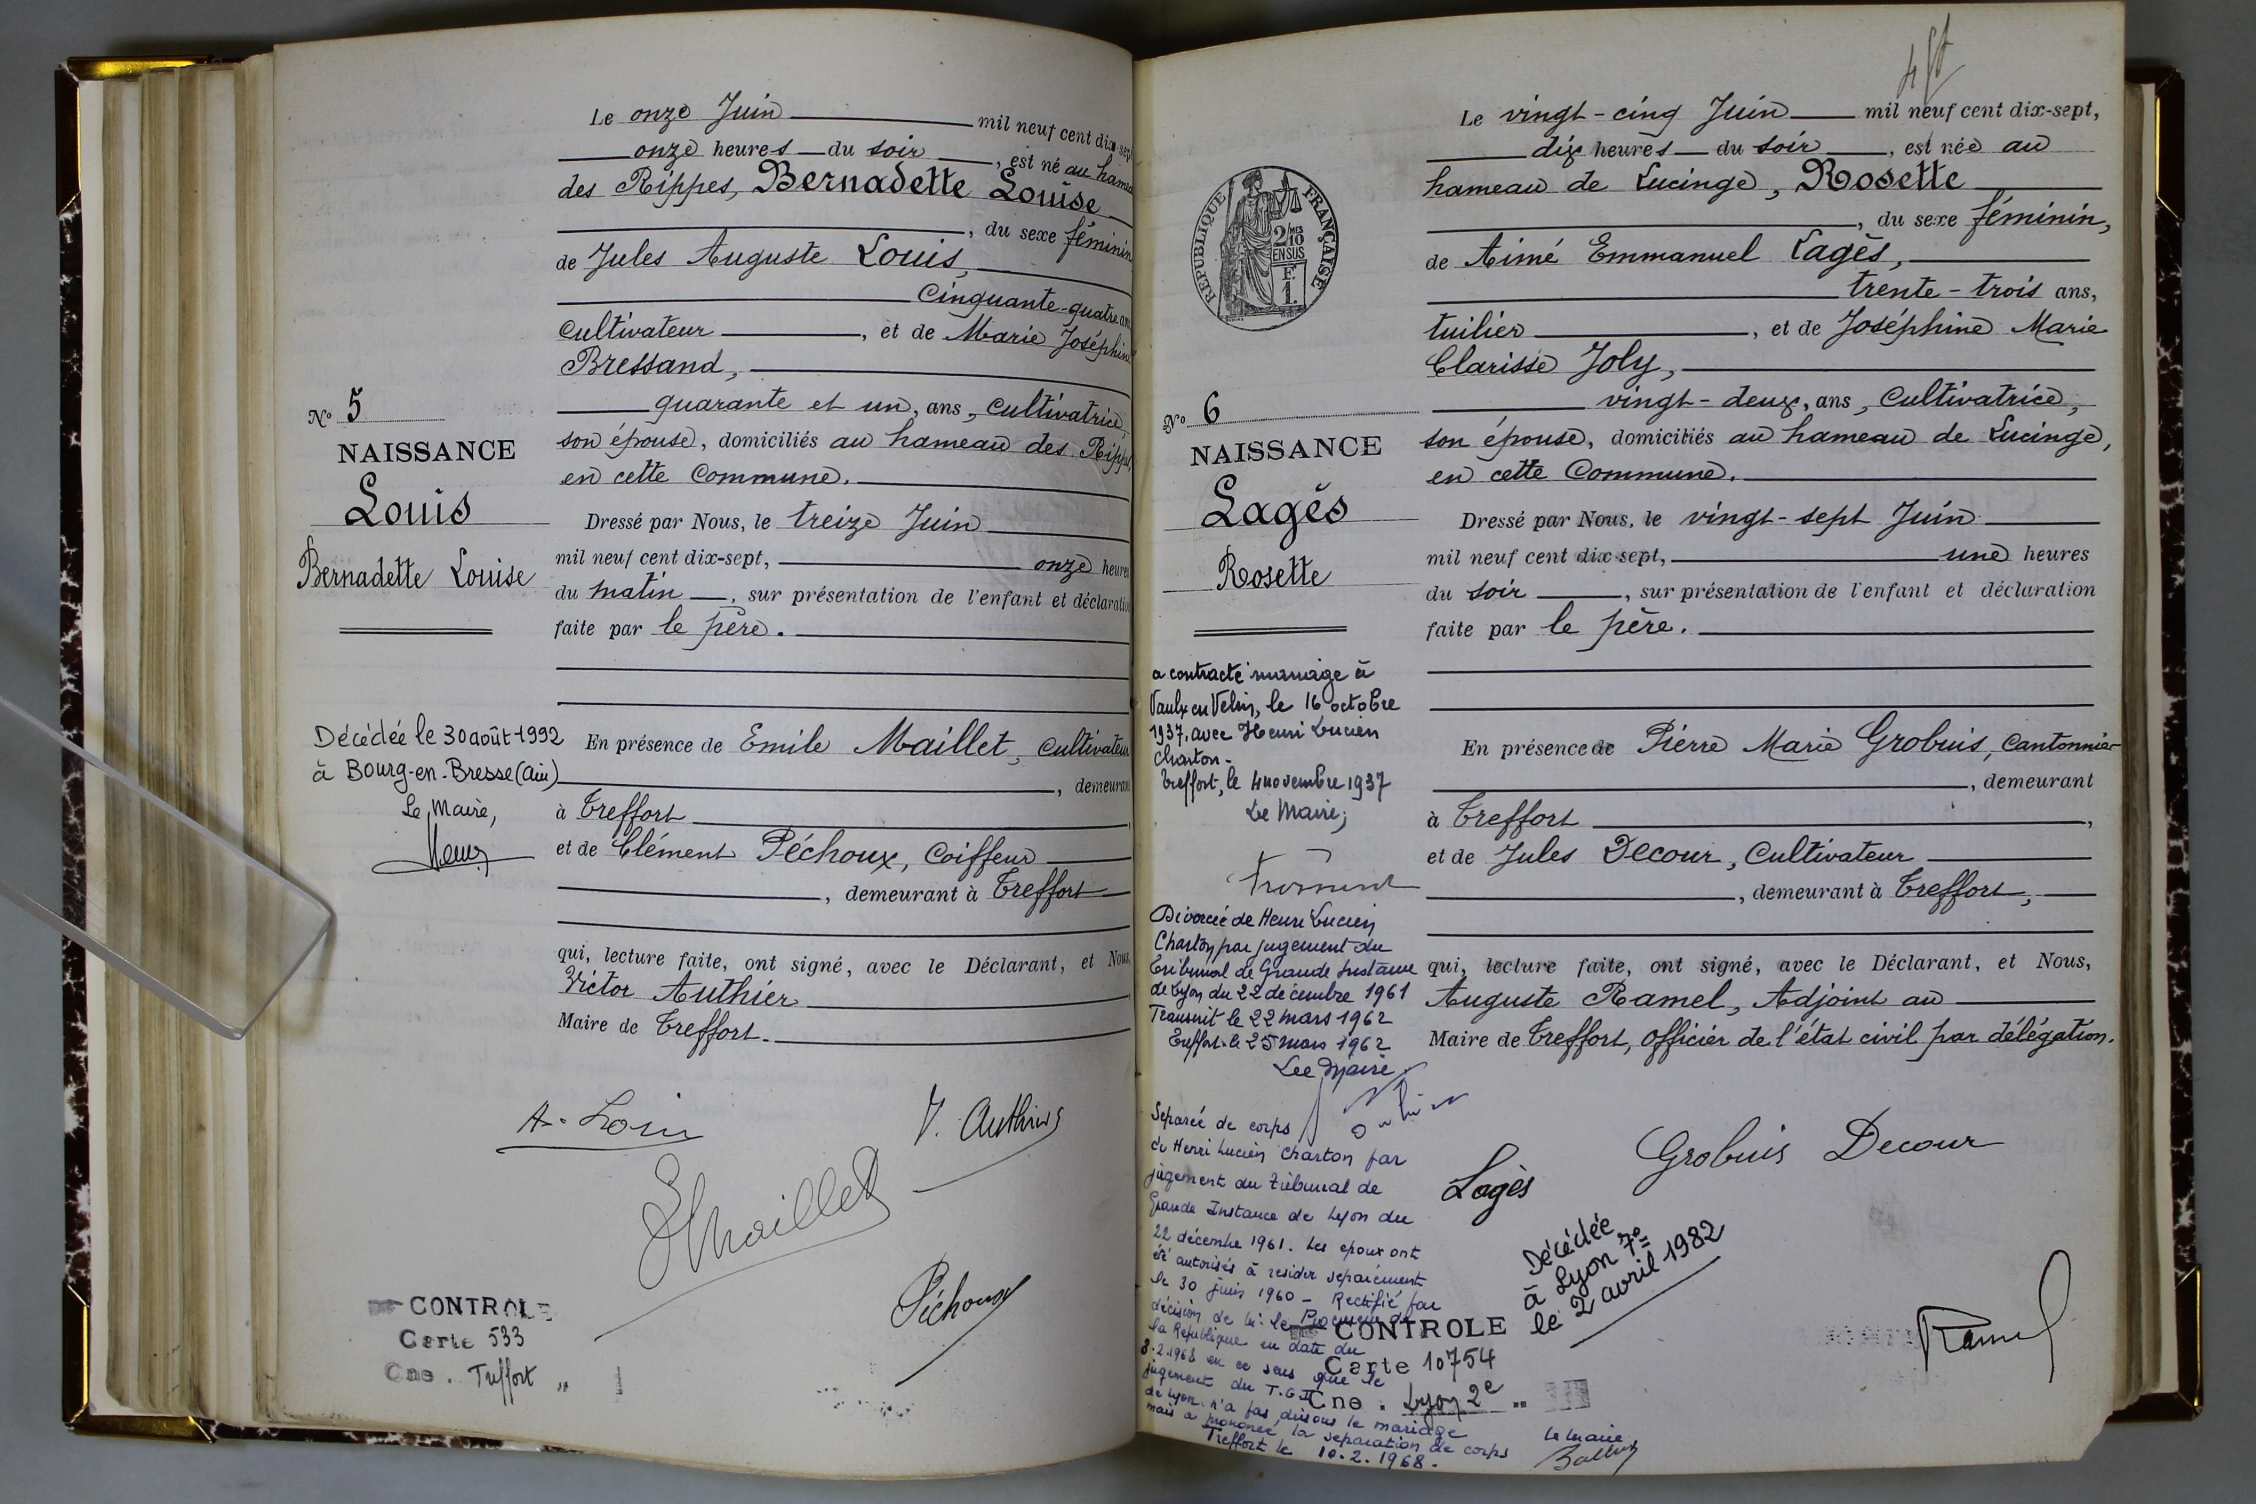 Le onze Juin mil neuf cent dix-sept
onze heures du soir, est né au hameau
des Rippes, Bernadette Louise
, du sexe féminin
de Jules Auguste Louis,
Cinquante-quatre ans
Cultivateur, et de Marie Joséphine
Bressand,
quarante et un, ans, Cultivatrice,
son épouse, domiciliés au hameau des Rippes
en cette Commune.
Dressé par Nous, le treize Juin
mil neuf cent dix-sept, onze heures
du matin, sur présentation de l'enfant et déclaration
faite par le père.
En présence de Emile Maillet, Cultivateur
, demeurant
à Treffort
et de Clément Péchoux, Coiffeur
, demeurant à Treffort
qui, lecture faite, ont signé, avec le Déclarant, et Nous,
Victor Authier
Maire de Treffort.
N° 5
NAISSANCE
Louis
Bernadette Louise
Décédée le 30 août 1992
à Bourg-en-Bresse (Ain)
Le Maire,
A. Louis
V. Authier
E Maillet
Péchoux
CONTROLE
Carte 533
Cne. Treffort "
Le vingt-cinq Juin mil neuf cent dix-sept,
dix heures du soir, est née au
hameau de Lucinge, Rosette
, du sexe féminin,
de Aimé Emmanuel Lagès,
trente-trois ans,
tuilier, et de Joséphine Marie
Clarisse Joly,
vingt-deux, ans, Cultivatrice,
son épouse, domiciliés au hameau de Lucinge,
en cette Commune.
Dressé par Nous, le vingt-sept Juin
mil neuf cent dix-sept, une heures
du soir, sur présentation de l'enfant et déclaration
faite par le père.
En présence de Pierre Marie Grobuis, Cantonnier
, demeurant
à Treffort,
et de Jules Decour, Cultivateur
, demeurant à Treffort,
qui, lecture faite, ont signé, avec le Déclarant, et Nous,
Auguste Ramel, Adjoint au
Maire de Treffort, officier de l'état civil par délégation.
REPUBLIQUE FRANÇAISE
2/10 MES
EN SUS
F.
1.
N° 6
NAISSANCE
Lagès
Rosette
a contracté mariage à
Vaulx en Velin, le 16 octobre
1937, avec Henri Lucien
Charton-
Treffort, le 4 novembre 1937
Le Maire;
Divorcée de Henri Lucien
Charton par jugement du
Tribunal de Grande Instance
de Lyon du 22 décembre 1961
Transmit le 22 mars 1962
Treffort le 25 mars 1962
Le Maire
Séparée de corps
de Henri Lucien Charton par
jugement du Tribunal de
Grande Instance de Lyon du
22 décembre 1961. Les époux ont
été autorisés à résider séparément
le 30 juin 1960 - Rectifié par
décision de Mr. Le Procureur de
la République en date du
8.2.1968 en ce sens que le
jugement du T.G.I.
de Lyon n'a pas dissous le mariage
mais a prononcé la séparation de corps
Treffort le 10.2.1968.
Le Maire
Lagès
Grobuis
Decour
Décédée
à Lyon 7e
le 2 avril 1982
Ramel
CONTROLE
Carte 10754
Cne. Lyon 2e "